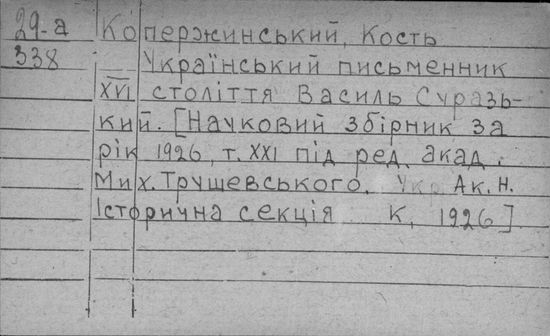 29-а Копержинський, Кость
338 Український письменник
XVI століття Василь Суразь-
кий. [Науковий збірник за
рік 1926, т. XXI під ред. акад.
Мих. Грушевського. Укр Ак. Н.
Історична секція К, 1926]